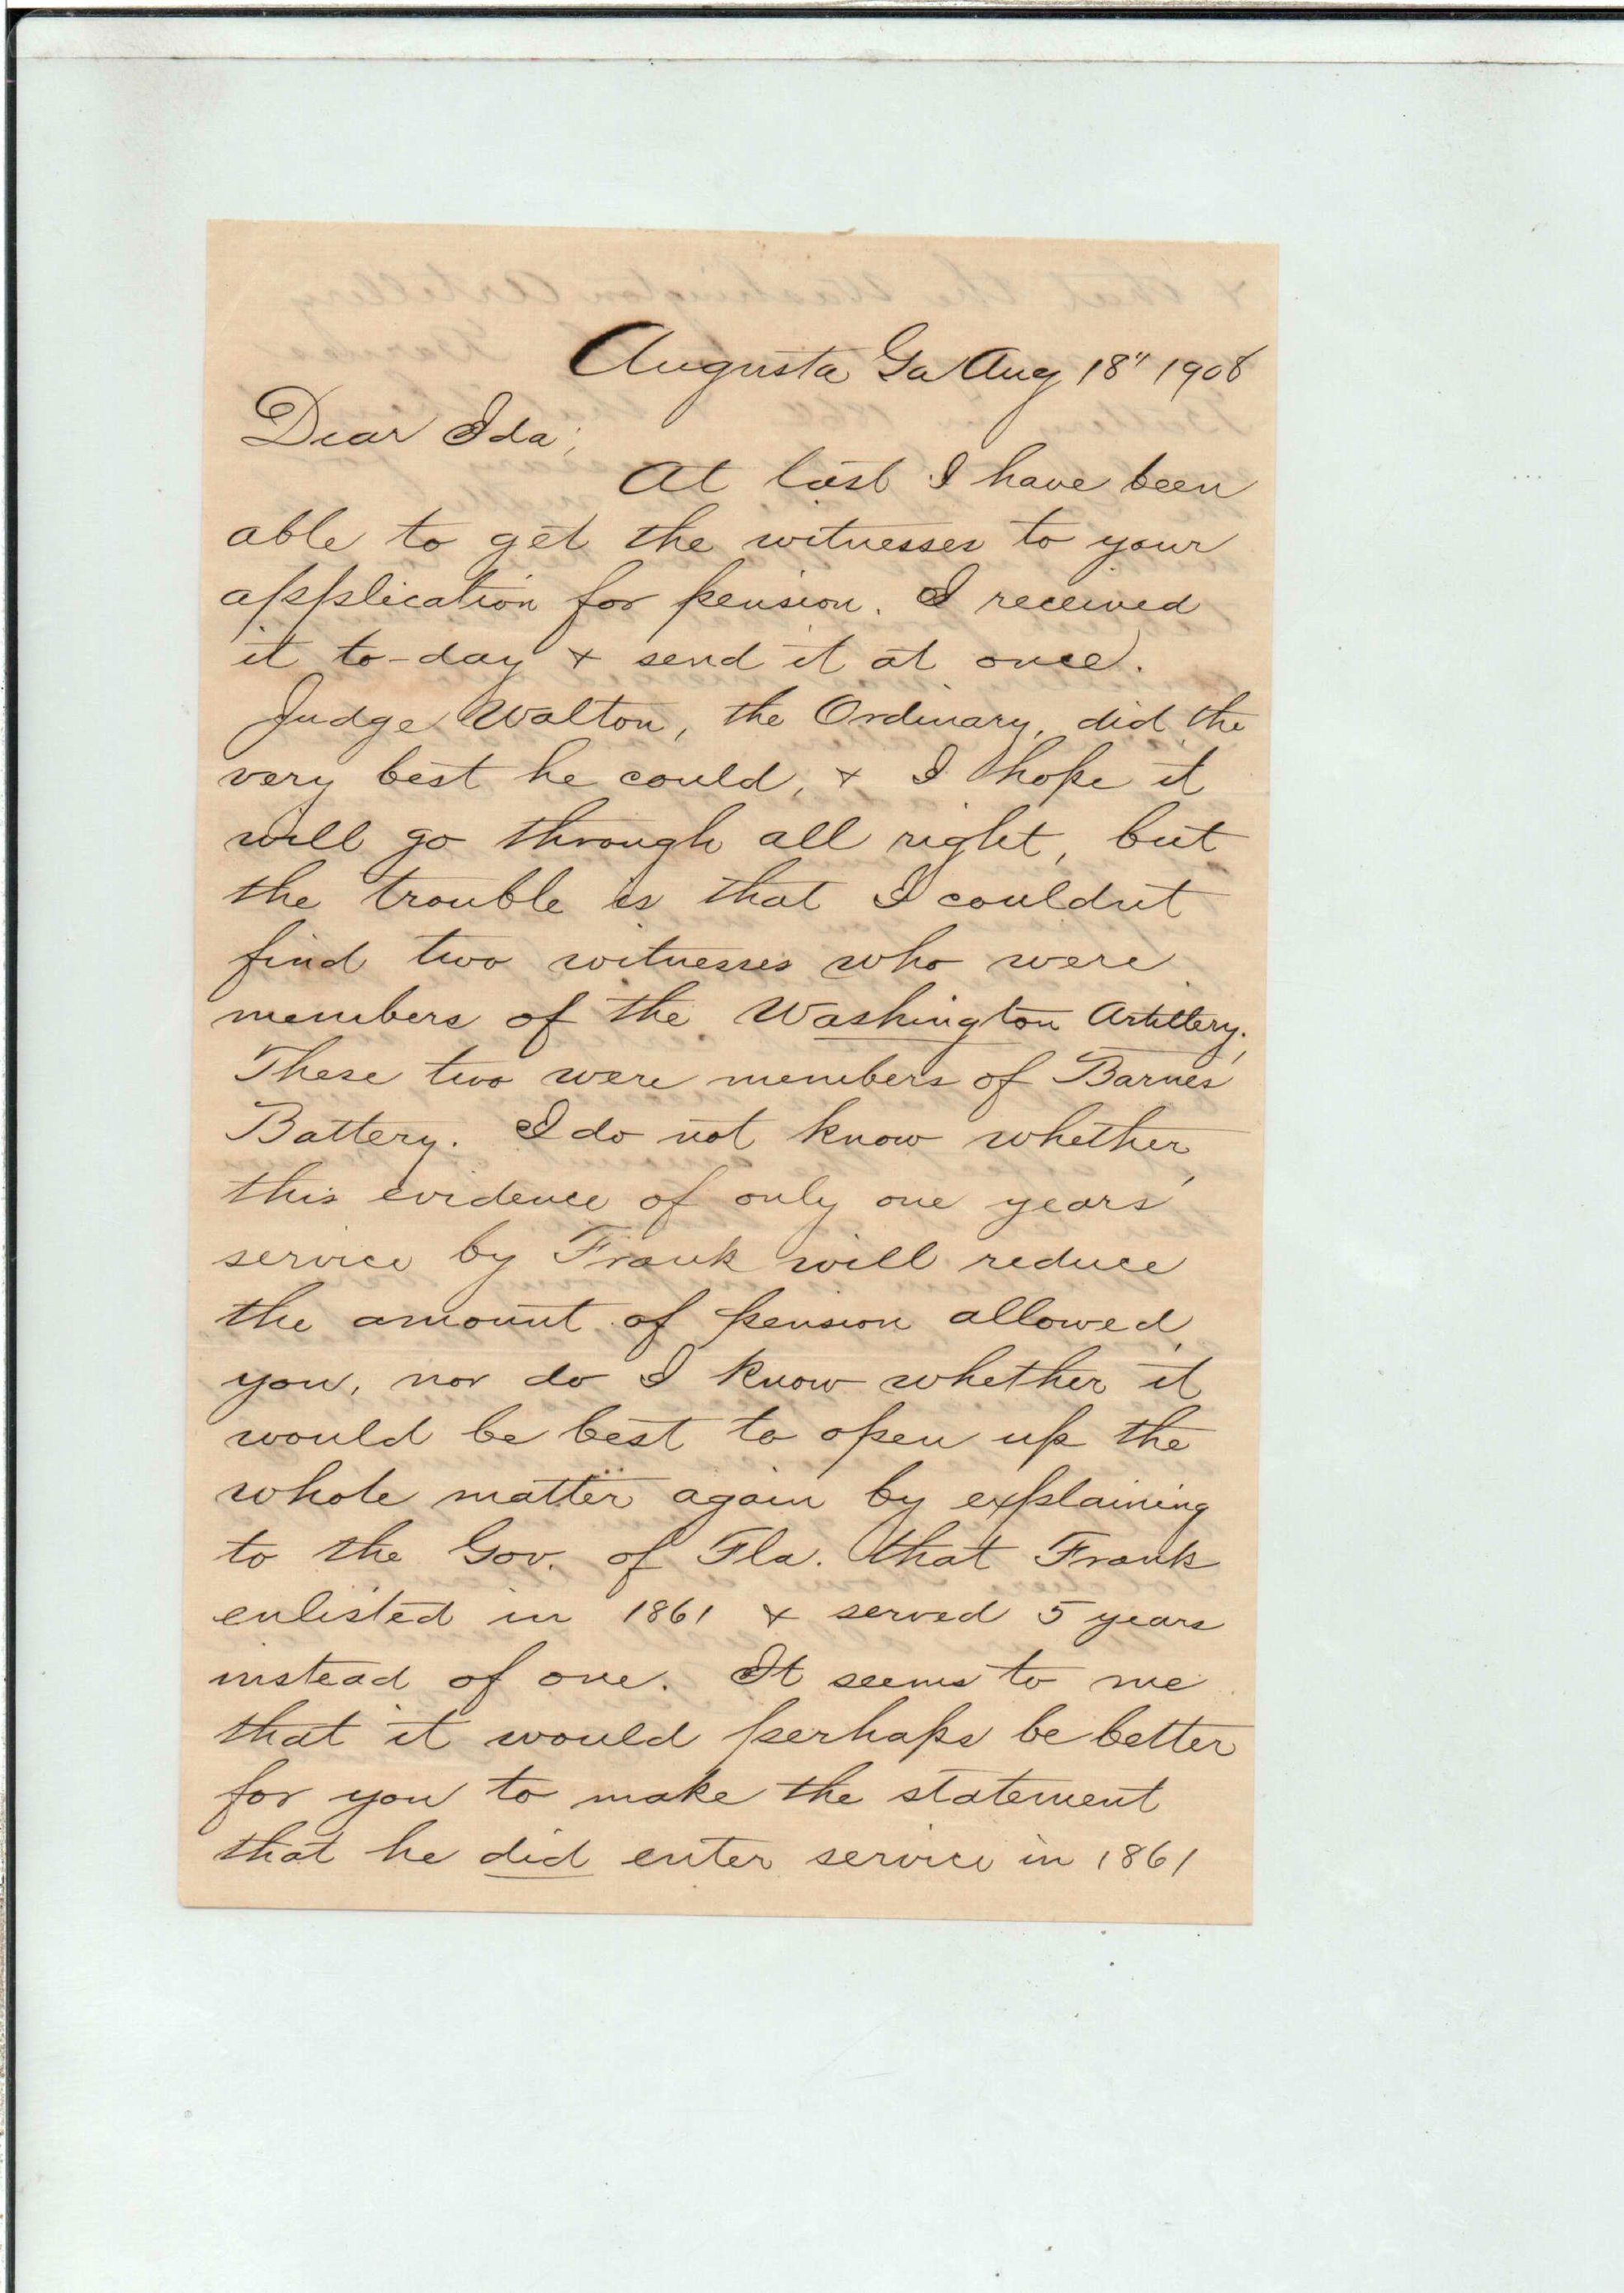 Augusta Ga Aug 18" 1908
Dear Ida;
At last I have been
able to get the witnesses to your
application for pension. I received
it to-day & send it at once.
Judge Walton, the Ordinary, did the
very best he could, & I hope it
will go through all right, but
the trouble is that I couldnt
find two witnesses who were
members of the Washington Artillery.
These two were members of Barnes'
Battery. I do not know whether
this evidence of only one years'
service by Frank will reduce
the amount of pension allowed
you, nor do I know whether it
would be best to open up the
whole matter again by explaining
to the Gov. of Fla. that Frank
enlisted in 1861 & served 5 years
instead of one. It seems to me
that it would perhaps be better
for you to make the statement
that he did enter service in 1861